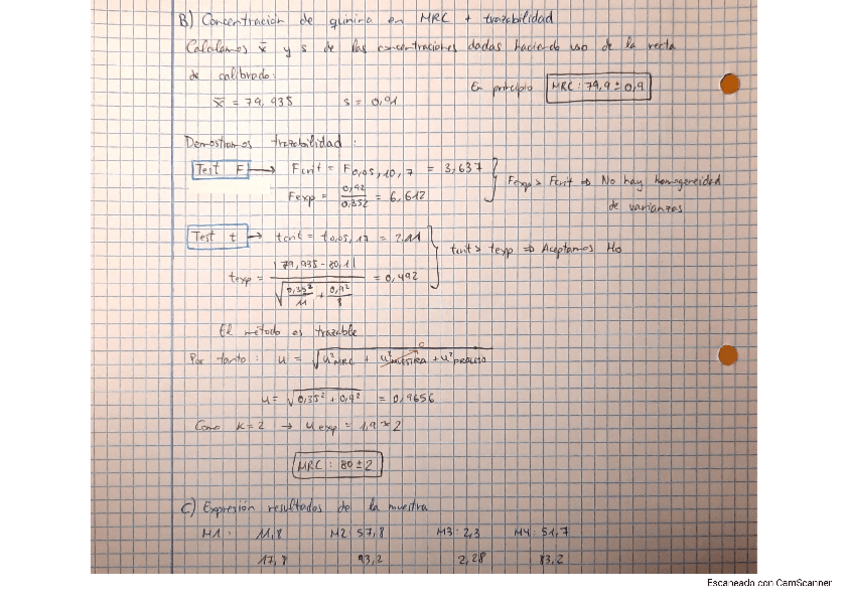 B) Concentración de quinina en MRC + trazabilidad
Calculamos x̄ y s de las concentraciones dadas haciendo uso de la recta
de calibrado:
En principio MRC: 79,9 ± 0,9
x̄ = 79,935 s = 0,91
Demostramos trazabilidad:
Test F → Fcrit = F0,05, 10, 7 = 3,637
Fexp = 0,92 / 0,352 = 6,612
Fexp > Fcrit ⇒ No hay homogeneidad
de varianzas
Test t → tcrit = t0,05, 17 = 2,11
texp = |79,935 - 80,1| / √(0,35² / 11 + 0,9² / 8) = 0,492
tcrit > texp ⇒ Aceptamos Ho
El método es trazable
Por tanto: u = √(u²MRC + u²MUESTRA + u²PROCESO)
0
u = √(0,35² + 0,9²) = 0,9656
Como K=2 → uexp = 1,9 ≈ 2
MRC: 80 ± 2
C) Expresión resultados de la muestra
M1: 11,8 M2: 57,8 M3: 2,3 M4: 51,7
93,2 2,28 83,2
Escaneado con CamScanner